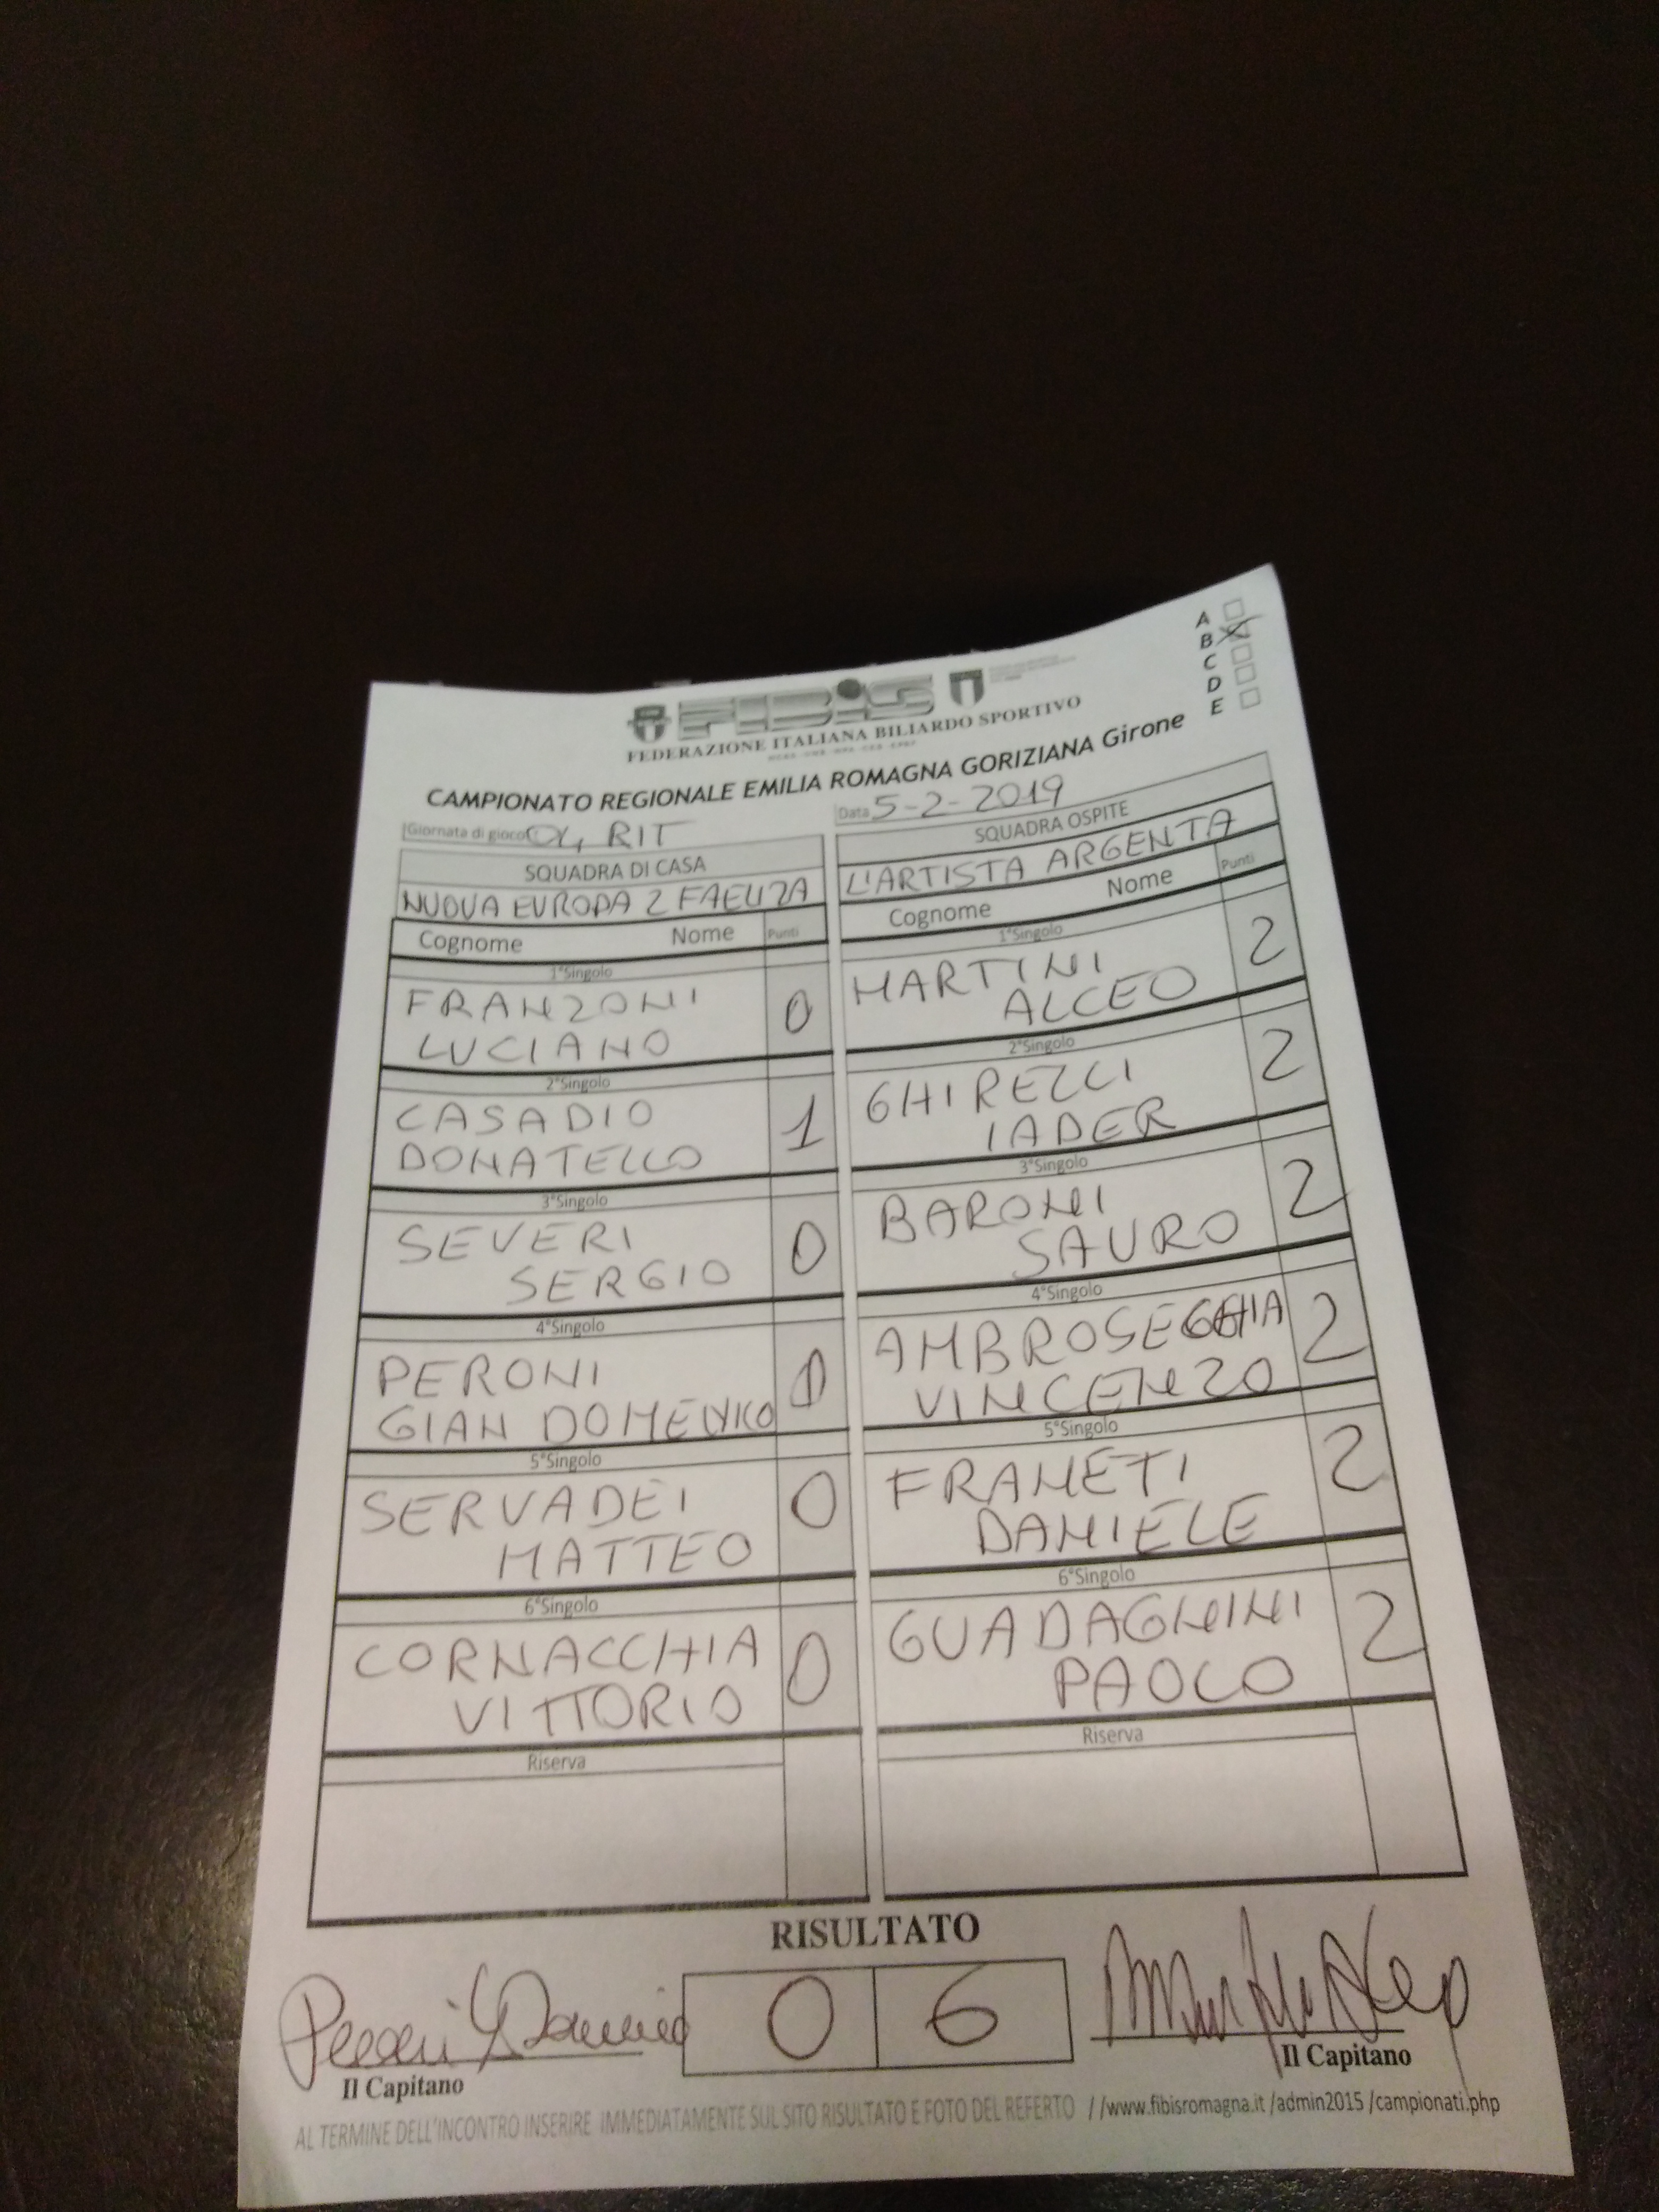 A
B
C
D
E
FIBiS
FEDERAZIONE ITALIANA BILIARDO SPORTIVO
CAMPIONATO REGIONALE EMILIA ROMAGNA GORIZIANA Girone
Giornata di gioco RIT
Data 5-2-2019
SQUADRA DI CASA
SQUADRA OSPITE
NUOVA EUROPA 2 FAENZA
L'ARTISTA ARGENTA
Cognome Nome Punti
Cognome Nome Punti
1°Singolo
FRANZONI
LUCIANO
0
1°Singolo
MARTINI
ALCEO
2
2°Singolo
CASADIO
DONATELLO
1
2°Singolo
GHIRELLI
IADER
2
3°Singolo
SEVERI
SERGIO
0
3°Singolo
BARONI
SAURO
2
4°Singolo
PERONI
GIAN DOMENICO
4°Singolo
VINCENZO
2
5°Singolo
SERVADEI
MATTEO
0
5°Singolo
DANIELE
2
6°Singolo
CORNACCHIA
VITTORIO
0
6°Singolo
GUADAGNINI
PAOLO
2
Riserva
Riserva
RISULTATO
0 6
Il Capitano
Il Capitano
AL TERMINE DELL'INCONTRO INSERIRE IMMEDIATAMENTE SUL SITO RISULTATO E FOTO DEL REFERTO //www.fibisromagna.it /admin2015 /campionati.php